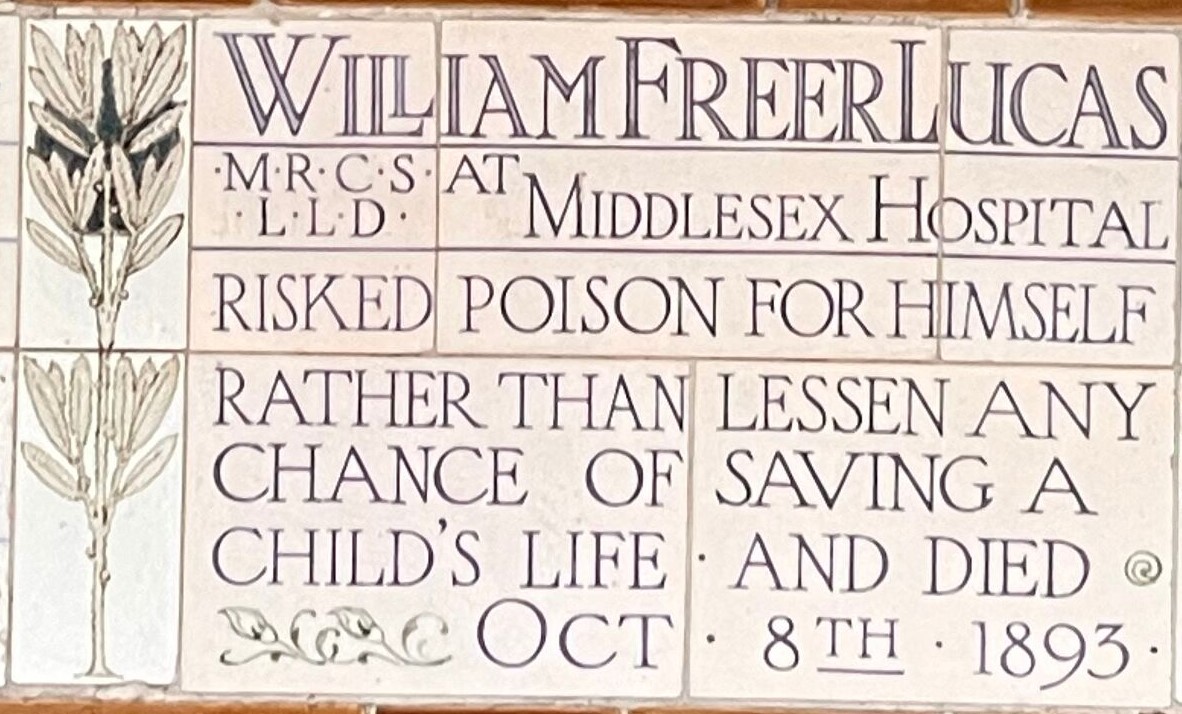 WILLIAM FREER LUCAS
·M·R·C·S· AT MIDDLESEX HOSPITAL
·L·L·D·
RISKED POISON FOR HIMSELF
RATHER THAN LESSEN ANY
CHANCE OF SAVING A
CHILD'S LIFE · AND DIED
OCT · 8TH · 1893 ·